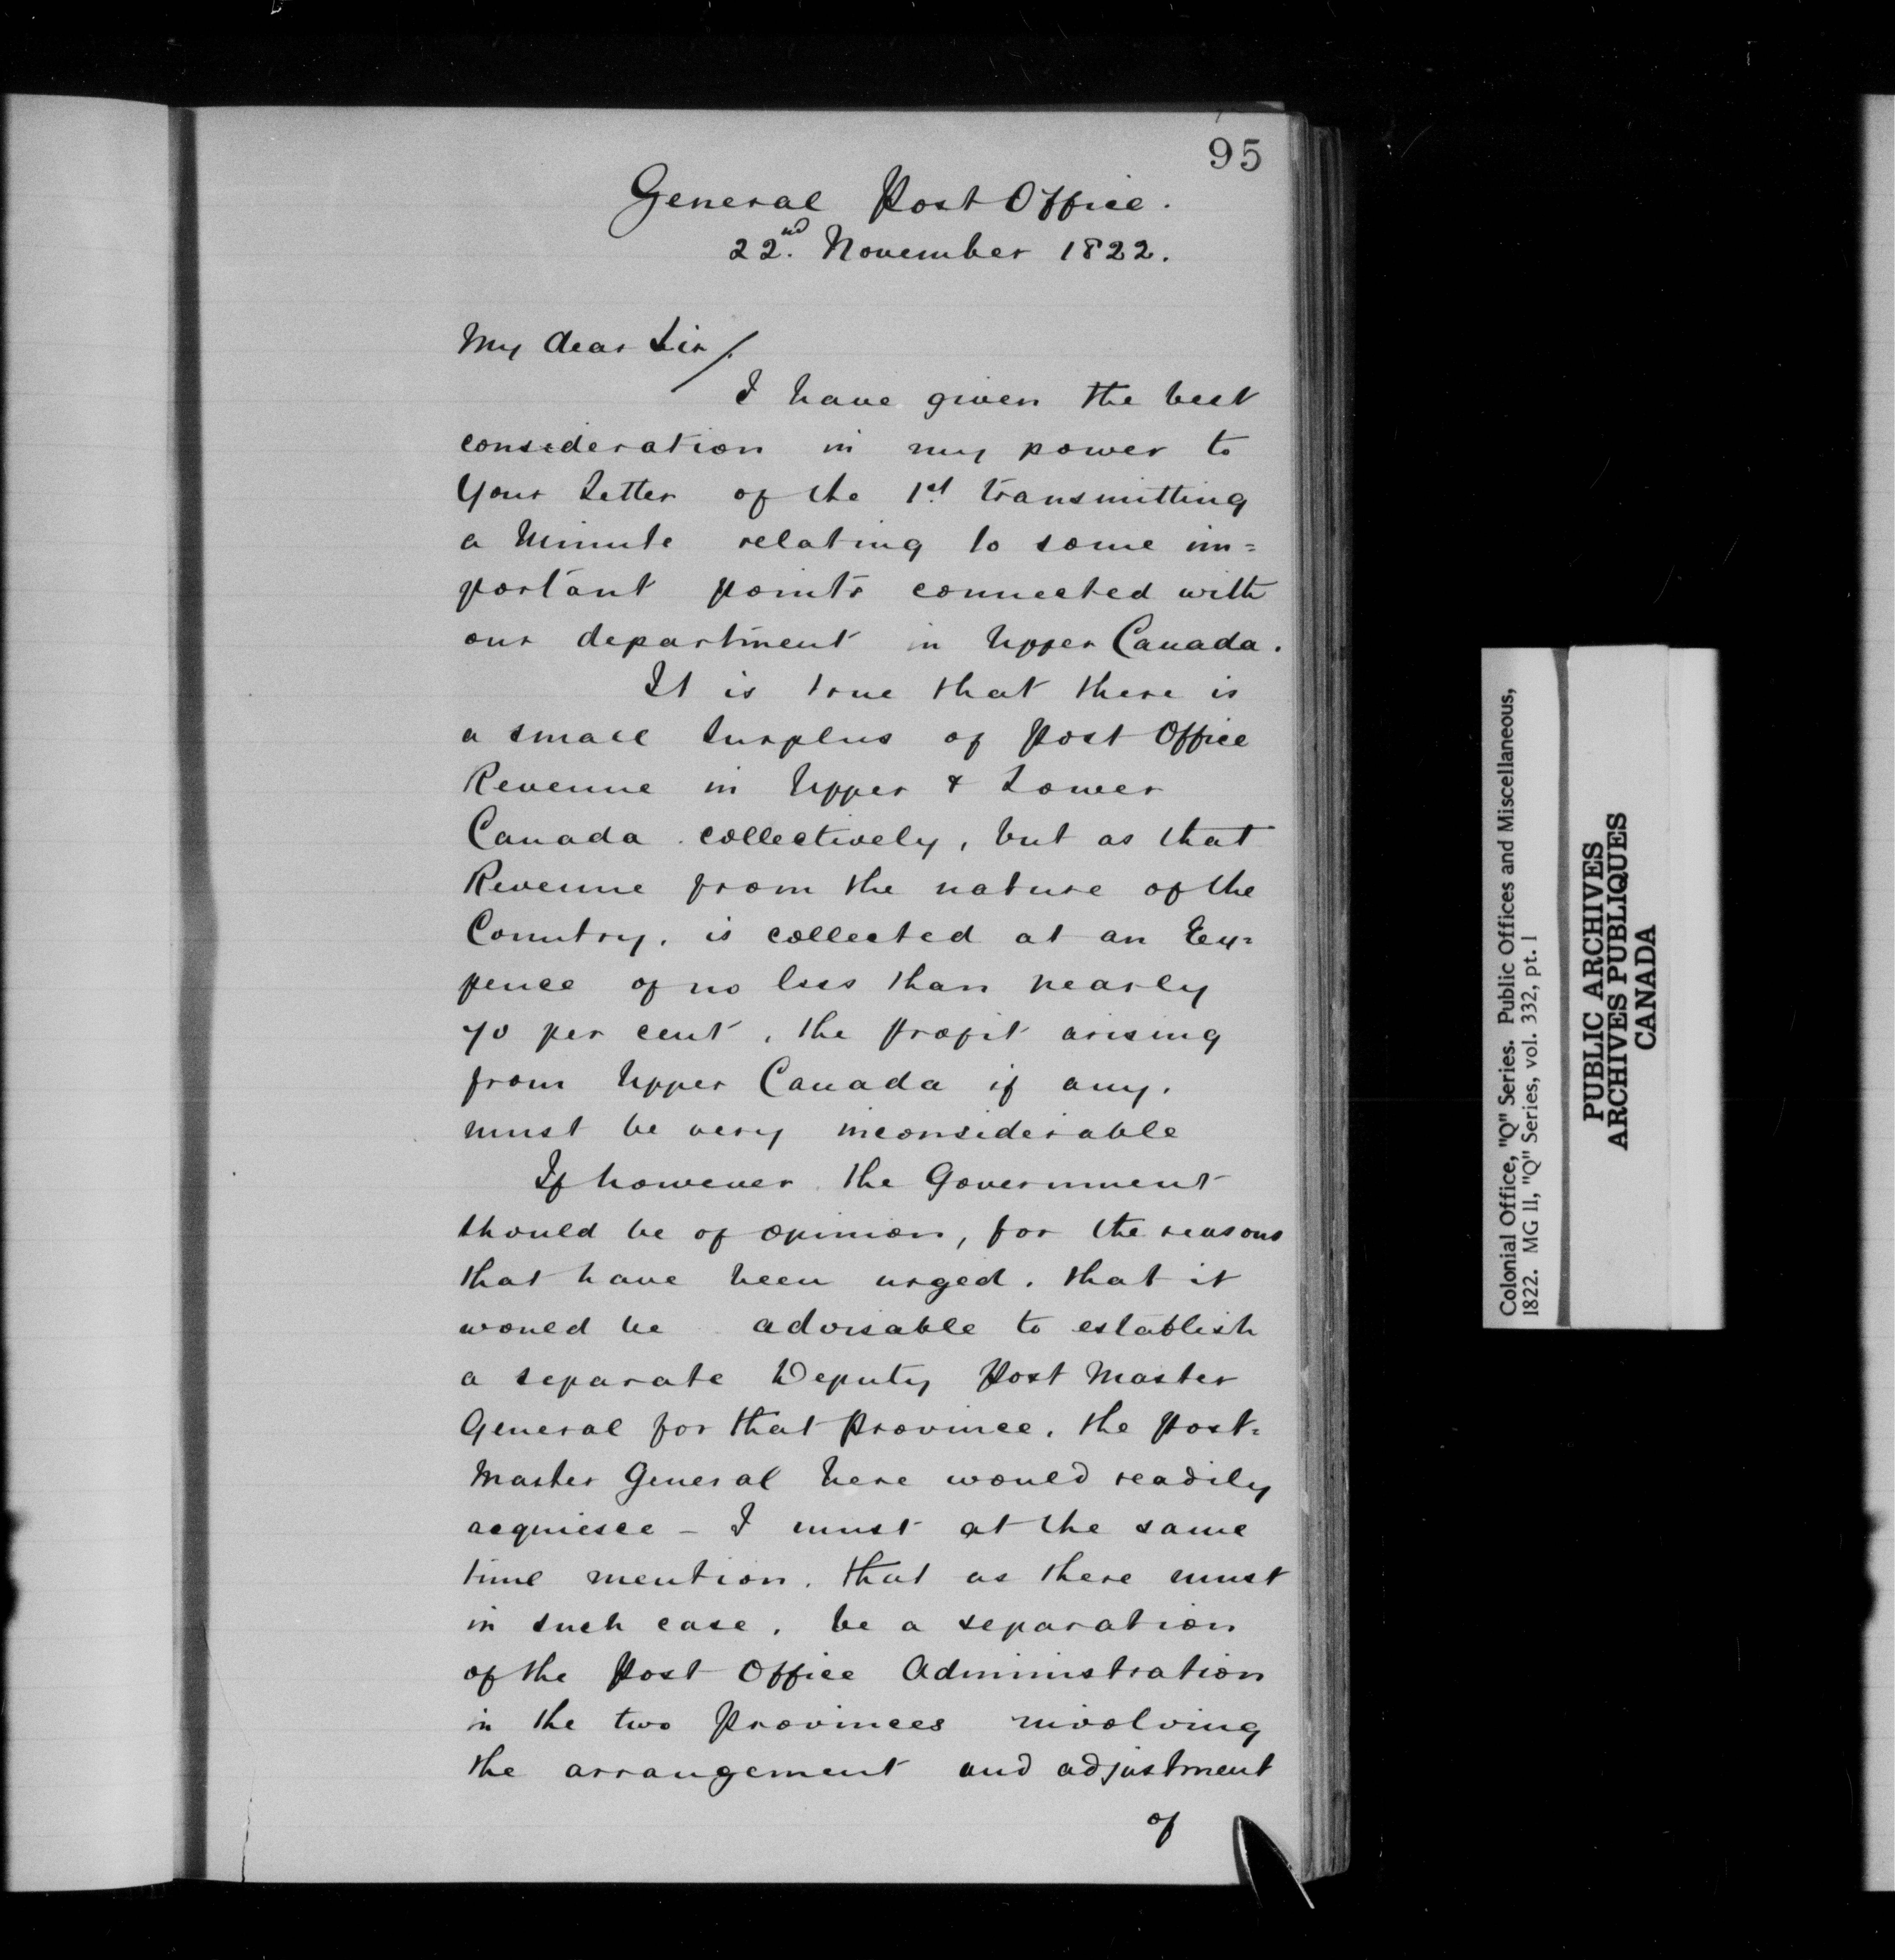 95
General Post Office.
22nd. November 1822.
My dear Sir/.
I have given the best
consideration in my power to
Your Letter of the 1st. transmitting
a Minute relating to some im=
portant points connected with
our department in Upper Canada.
It is true that there is
a small Surplus of Post Office
Revenue in Upper & Lower
Canada collectively, but as that
Revenue from the nature of the
Country, is collected at an Ex=
pence of no less than nearly
70 per cent, the profit arising
from Upper Canada if any,
must be very inconsiderable
If however the Government
should be of opinion, for the reasons
that have been urged, that it
would be advisable to establish
a separate Deputy Post Master
General for that Province, the Post=
Master General here would readily
acquiesce - I must at the same
time mention, that as there must
in such case, be a separation
of the Post Office Administration
in the two Provinces involving
the arrangement and adjustment
of
Colonial Office, "Q" Series. Public Offices and Miscellaneous,
1822. MG 11, "Q" Series, vol. 332, pt. 1
PUBLIC ARCHIVES
ARCHIVES PUBLIQUES
CANADA